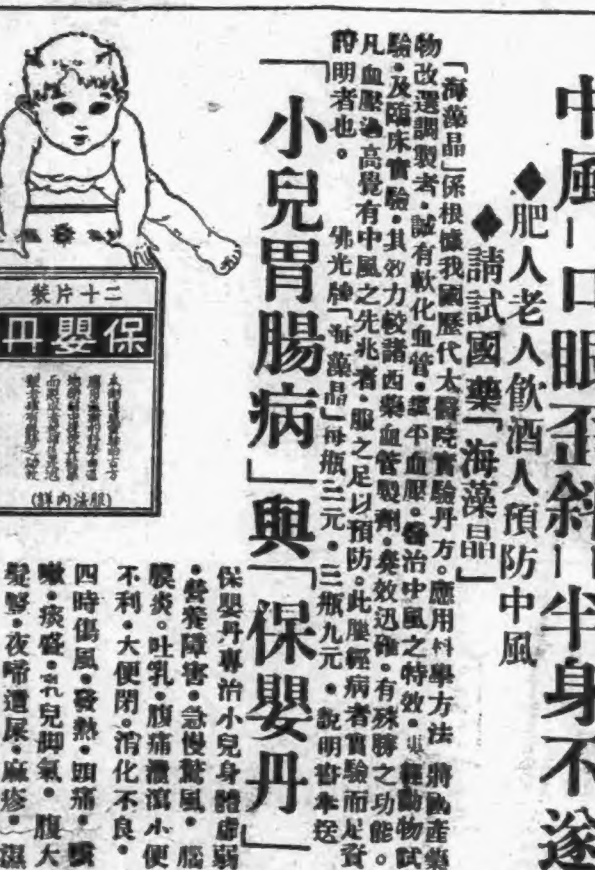 中風｜口眼歪斜｜半身不遂
◆肥人老人飲酒人預防中風
◆請試國藥「海藻晶」
「海藻晶」係根據我國歷代太醫院實驗丹方。應用科學方法 將國產藥
物改選調製者。誠有軟化血管。 平血壓。醫治中風之特效。 經動物試
驗。及臨床實驗。其效力較諸西藥血管製劑。奏效迅確。有殊勝之功能。
凡血壓過高覺有中風之先兆者。服之足以預防。此屢經病者實驗而足資
證明者也。
佛光牌「海藻晶」每瓶三元。三瓶九元。說明書奉送
「小兒胃腸病」與「保嬰丹」
保嬰丹專治小兒身體虛弱
。營養障害。急慢驚風。腦
膜炎。吐乳。腹痛瀉小便
不利。大便閉。消化不良。
四時傷風。發熱。頭痛。
嗽。痰盛。乳兒脚氣。腹大
。夜啼遺尿。麻疹。濕
二十片裝
保嬰丹
(服法內鮮)